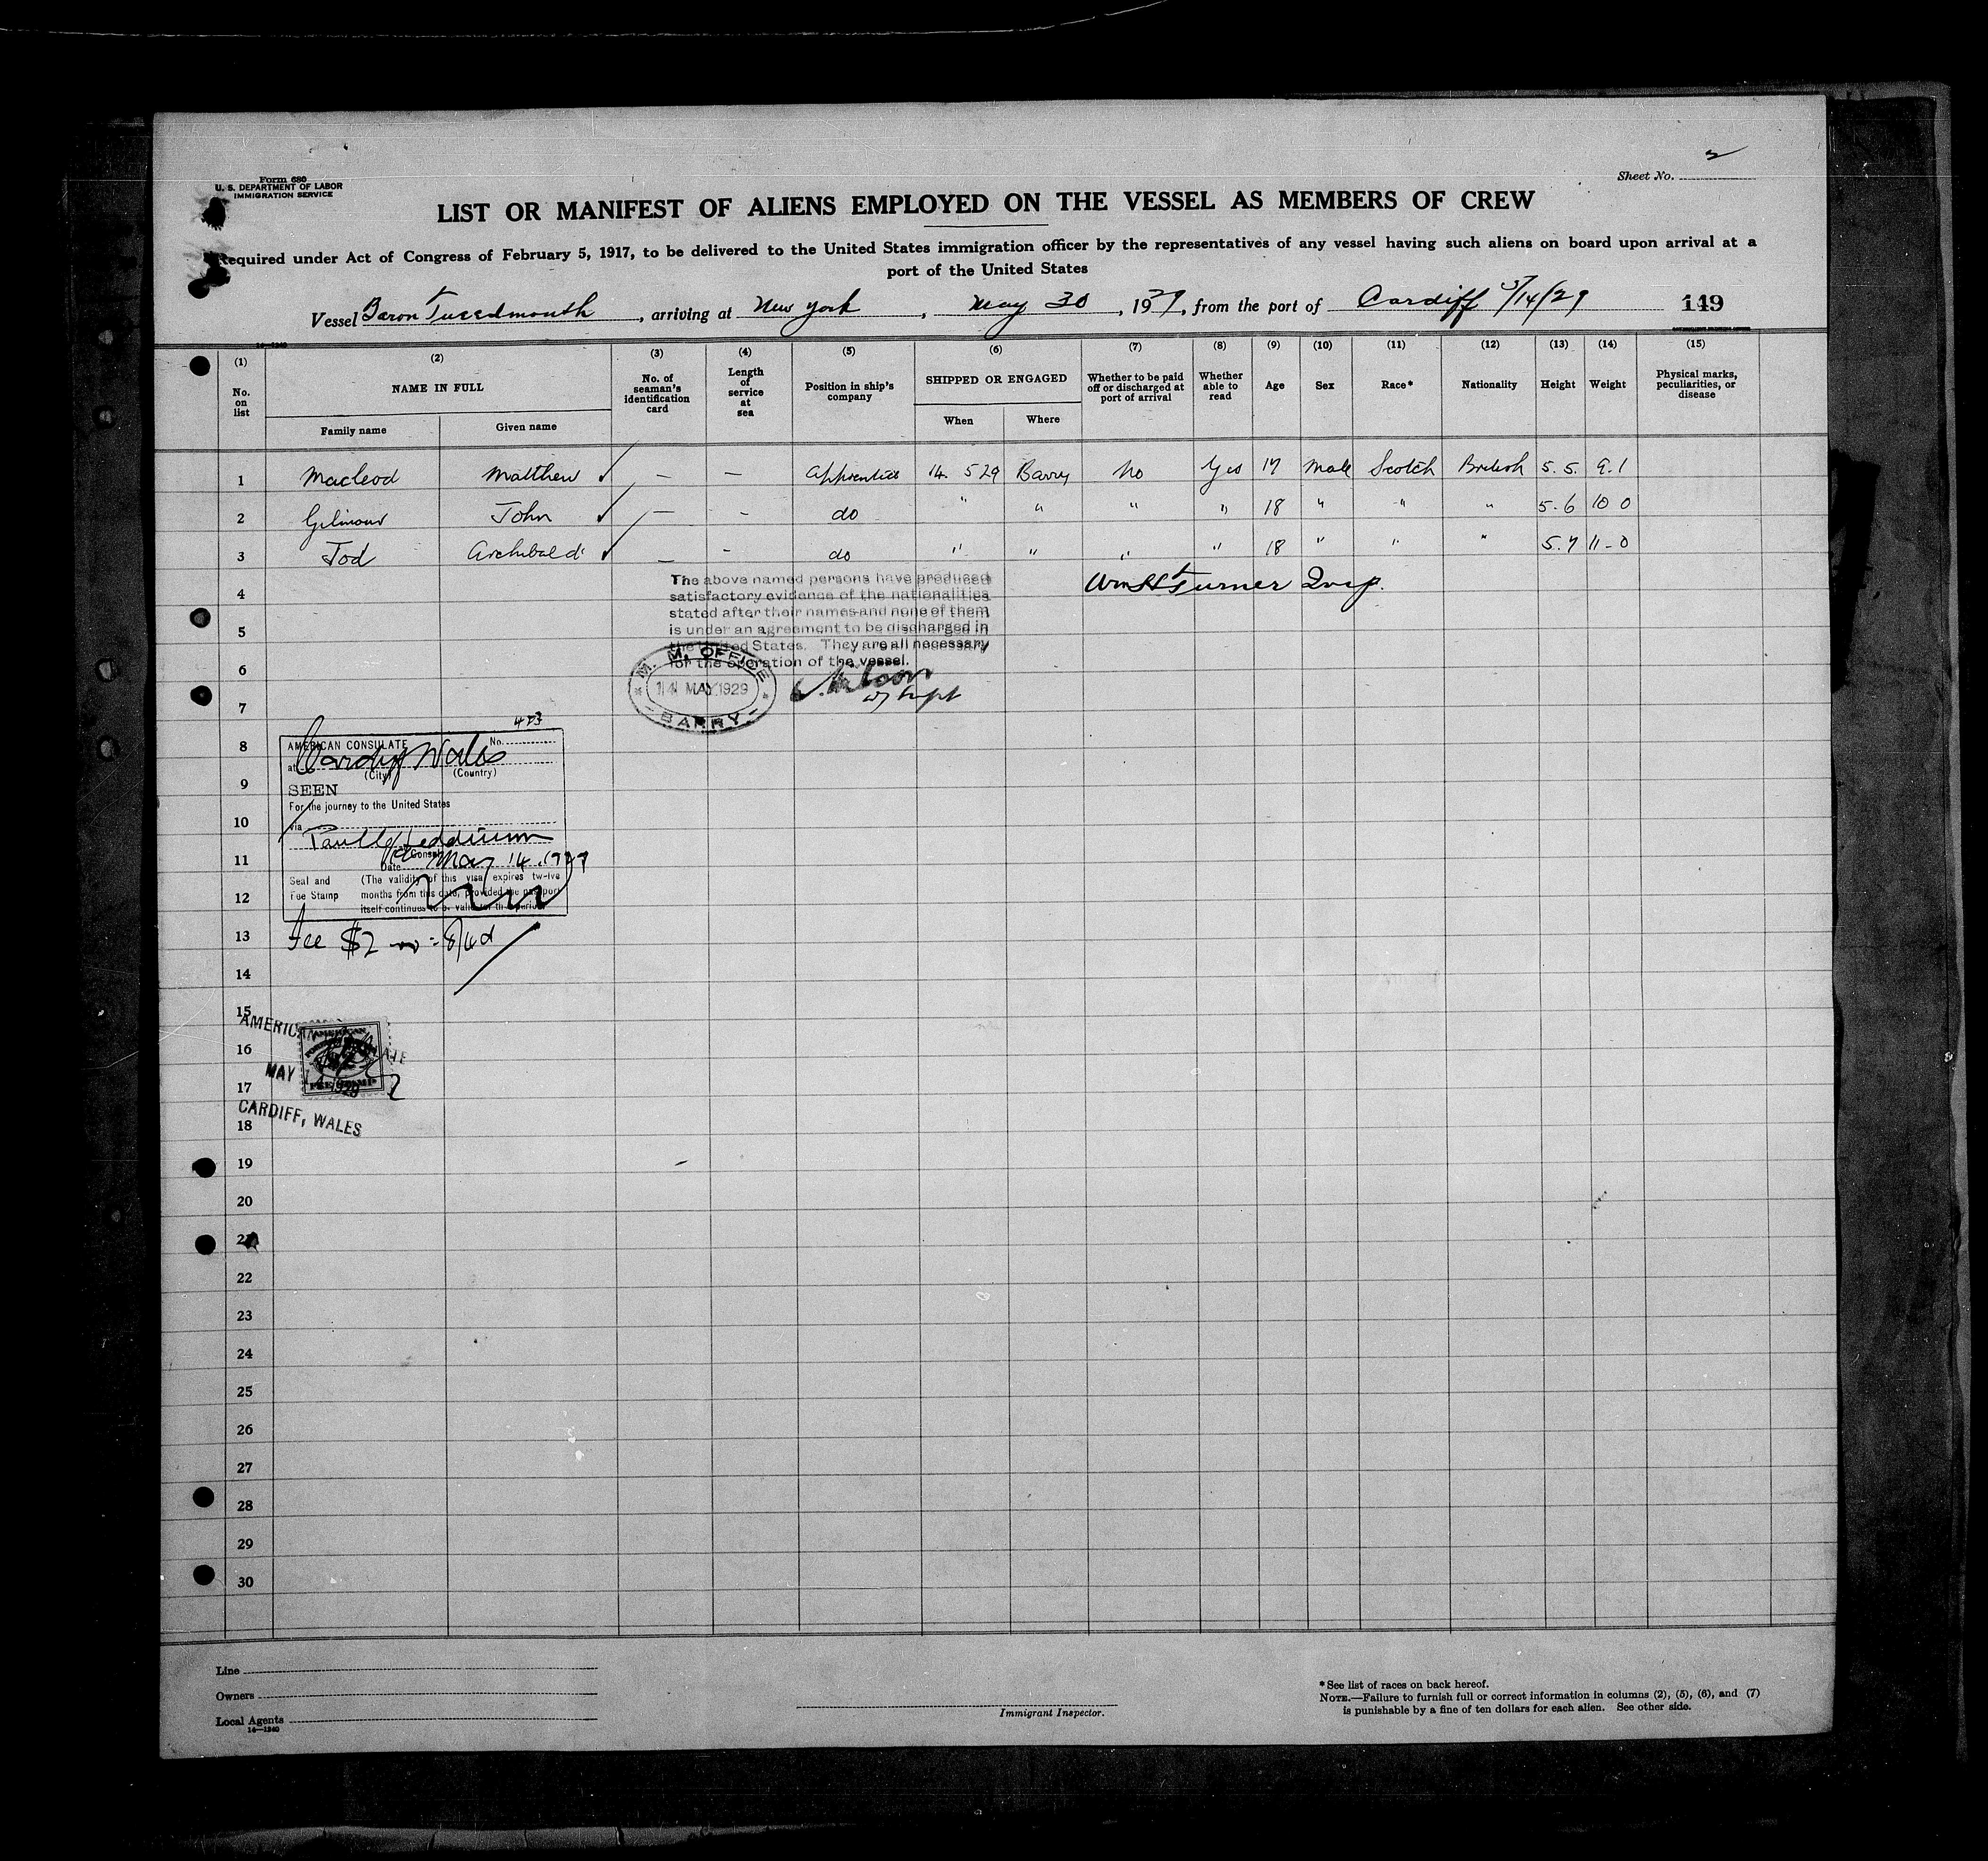 Form 680
U. S. DEPARTMENT OF LABOR
IMMIGRATION SERVICE
Sheet No. 2
LIST OR MANIFEST OF ALIENS EMPLOYED ON THE VESSEL AS MEMBERS OF CREW
Required under Act of Congress of February 5, 1917, to be delivered to the United States immigration officer by the representatives of any vessel having such aliens on board upon arrival at a
port of the United States
Vessel Baron Tweedmouth, arriving at New York, May 30, 1929, from the port of Cardiff 5/14/29 149
14—1240
(1) No. on list
(2) NAME IN FULL
Family name Given name
(3) No. of seaman's identification card
(4) Length of service at sea
(5) Position in ship's company
(6) SHIPPED OR ENGAGED
When Where
(7) Whether to be paid off or discharged at port of arrival
(8) Whether able to read
(9) Age
(10) Sex
(11) Race*
(12) Nationality
(13) Height
(14) Weight
(15) Physical marks, peculiarities, or disease
1 Macleod Matthew ✓ — — apprentice 14. 5 29 Barry No Yes 17 Male Scotch British 5. 5. 9. 1
2 Gilmour John ✓ — - do " " " " 18 " " " 5. 6 10 0
3 Tod Archibald ✓ — - do " " " " 18 " " " 5. 7 11-0
4 Wm H Turner Insp.
The above named persons have produced
satisfactory evidence of the nationalities
stated after their names and none of them
is under an agreement to be discharged in
the United States. They are all necessary
for the operation of the vessel.
M. M. OFFICE
14 MAY 1929
BARRY
5
6
7
8
9
10
11
12
13
14
15
16
17
18
19
20
21
22
23
24
25
26
27
28
29
30
AMERICAN CONSULATE No. 483
at Cardiff Wales
(City) (Country)
SEEN
For the journey to the United States
via
Consul
Date May 14, 1929
Seal and Fee Stamp
(The validity of this visa expires twelve
months from this date, provided the passport
itself continues to be valid for that period
Fee $2
AMERICAN CONSULATE
MAY 14 1929
CARDIFF, WALES
AMERICAN
FEE STAMP
Line
Owners
Local Agents
14—1240
Immigrant Inspector.
*See list of races on back hereof.
NOTE.—Failure to furnish full or correct information in columns (2), (5), (6), and (7)
is punishable by a fine of ten dollars for each alien. See other side.